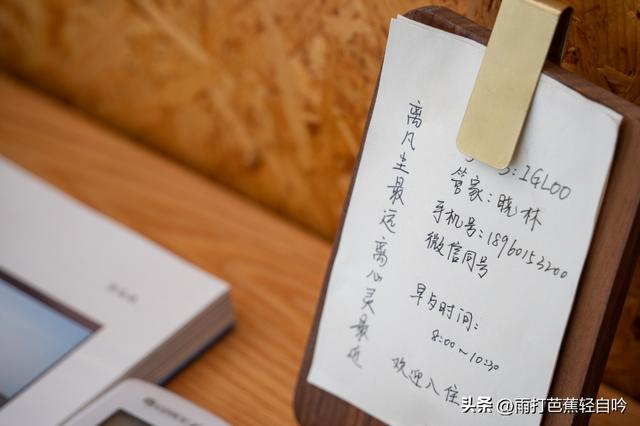 离凡尘最远离心灵最近
:IGLOO
管家：晓林
手机号：18960153200
微信同号
早点时间：
8:00~10:30
欢迎入住
头条 @雨打芭蕉轻自吟